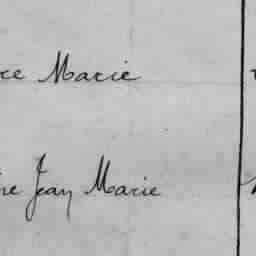 re Marie
re Jean Marie